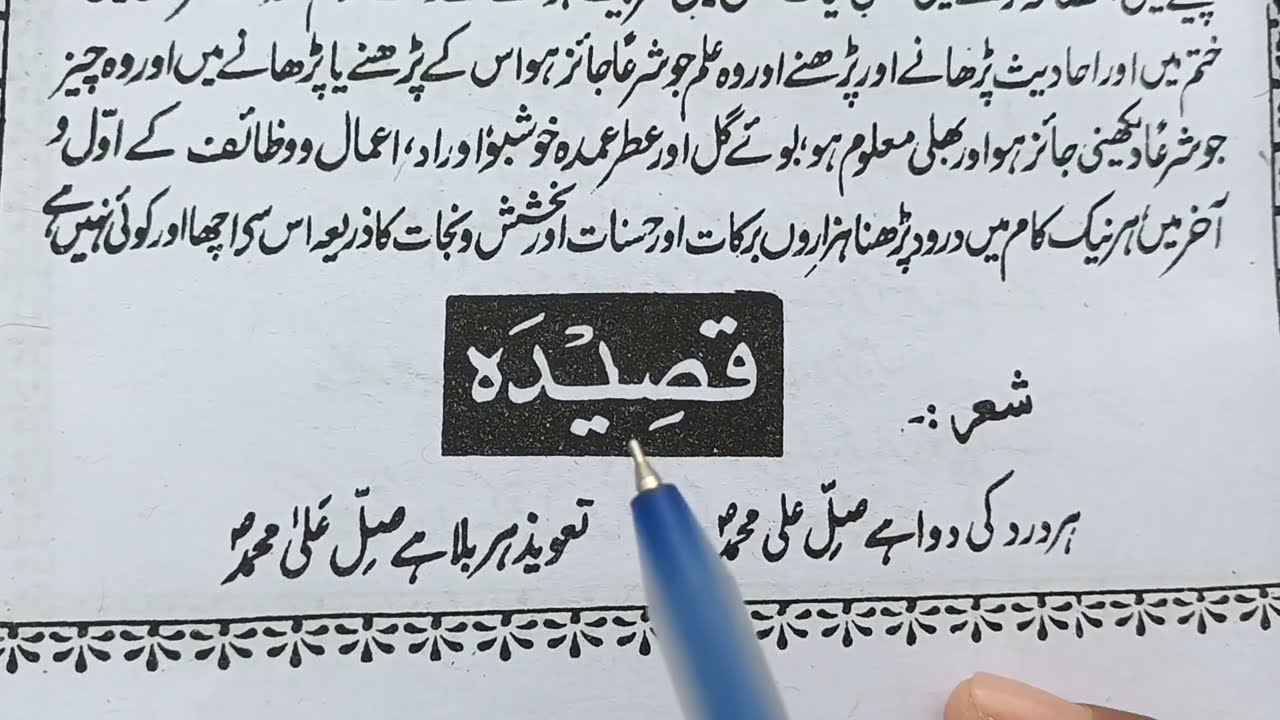 ختم میں اور احادیث پڑھانے اور پڑھنے اور وہ علم جو شرعاً جائز ہو اس کے پڑھنے یا پڑھانے میں اور وہ چیز
جو شرعاً دیکھنی جائز ہو اور بھلی معلوم ہو، بوئے گل اور عطر عمدہ خوشبو، اوراد، اعمال و وظائف کے اوّل و
آخر میں، ہر نیک کام میں درود پڑھنا ہزاروں برکات اور حسنات اور بخشش و نجات کا ذریعہ اس سے اچھا اور کوئی نہیں ہے
قَصِیْدَہ
شعر :-
ہر درد کی دوا ہے صلِّ علی محمدؐ تعویذ ہر بلا ہے صلِّ عَلیٰ محمدؐ